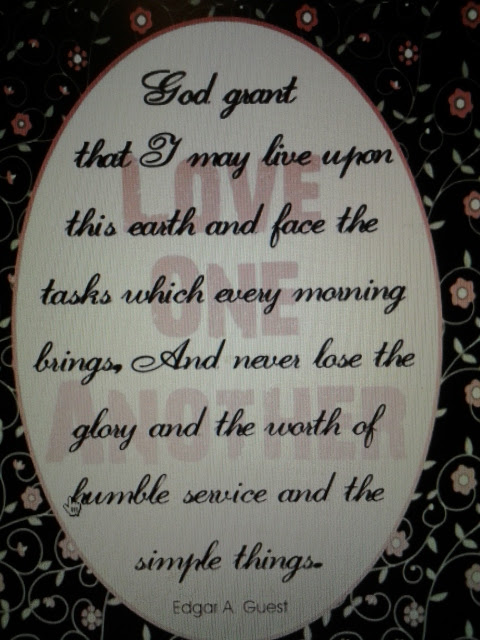 God grant
that I may live upon
this earth and face the
tasks which every morning
brings, And never lose the
glory and the worth of
humble service and the
simple things.
Edgar A. Guest
LOVE
ONE
ANOTHER